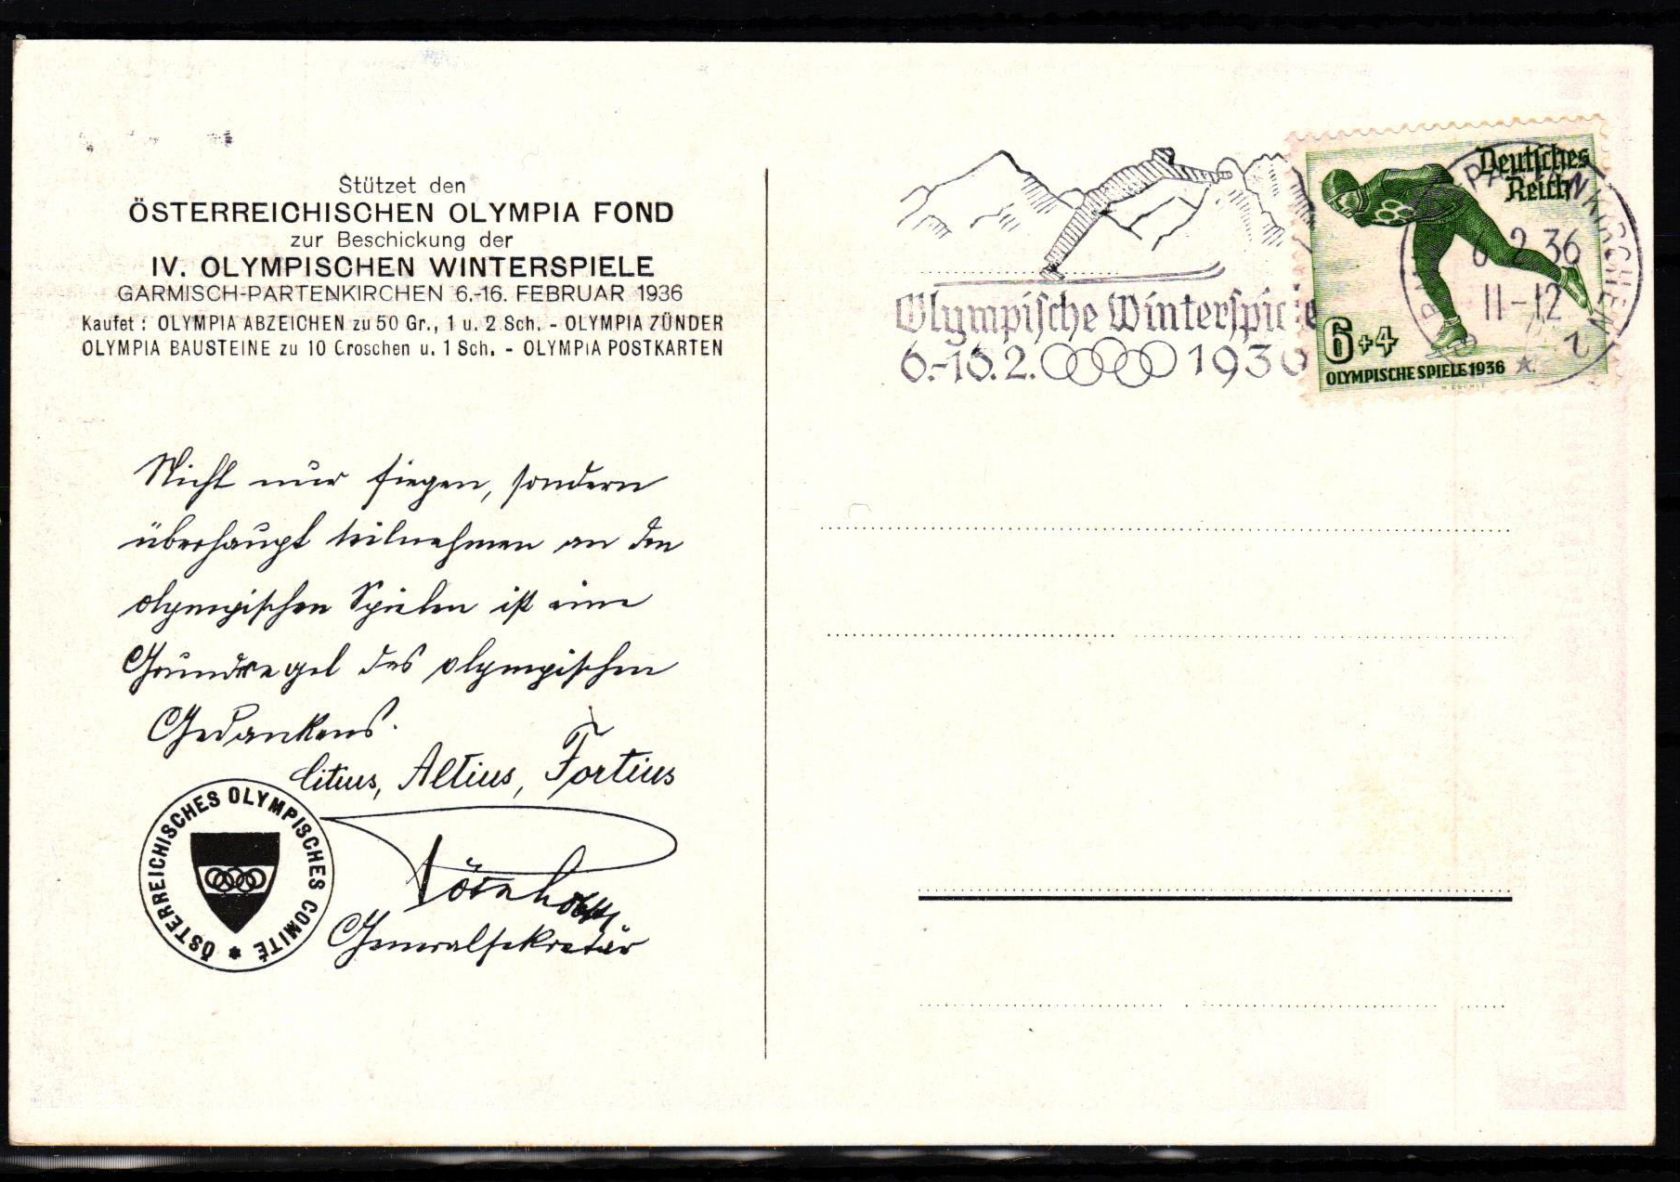 Stützet den
ÖSTERREICHISCHEN OLYMPIA FOND
zur Beschickung der
IV. OLYMPISCHEN WINTERSPIELE
GARMISCH-PARTENKIRCHEN 6.-16. FEBRUAR 1936
Kaufet : OLYMPIA ABZEICHEN zu 50 Gr., 1 u. 2 Sch. - OLYMPIA ZÜNDER
OLYMPIA BAUSTEINE zu 10 Groschen u. 1 Sch. - OLYMPIA POSTKARTEN
Nicht nur siegen, sondern
überhaupt teilnehmen an den
olympischen Spielen ist eine
Grundregel des olympischen
Gedankens.
Citius, Altius, Fortius
Generalsekretär
ÖSTERREICHISCHES OLYMPISCHES COMITÉ *
Olympische Winterspiele
6.-16.2. 1936
Deutsches
Reich
6+4
OLYMPISCHE SPIELE 1936
PARTENKIRCHEN
6 2 36
11-12
* 2